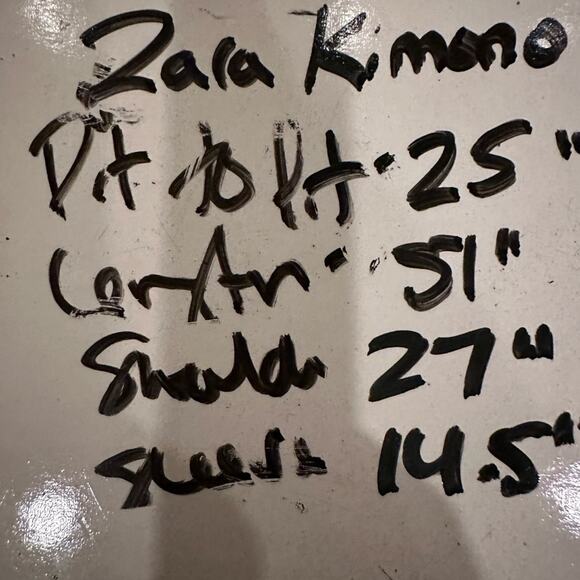 Zara Kimono
Pit to Pit - 25"
Length - 51"
Shoulder 27"
Sleeve 14.5"